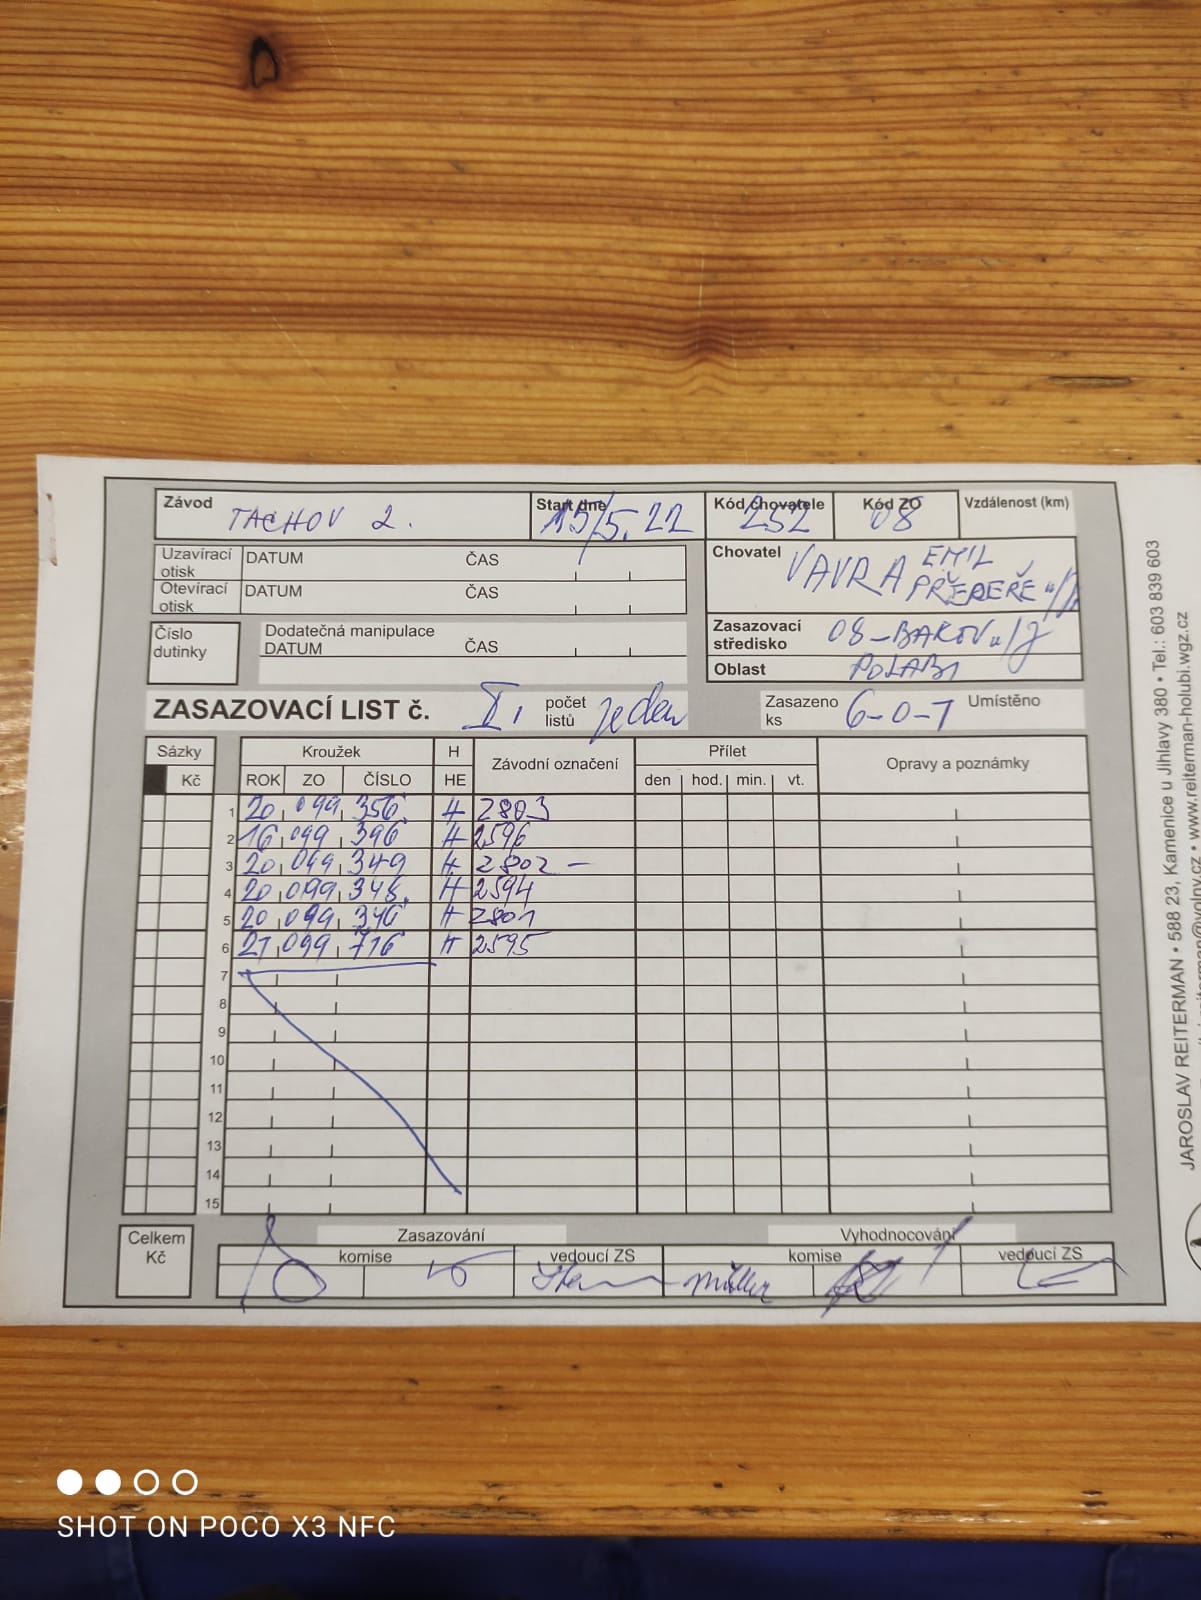 Závod TACHOV 2. Start dne 15/5.22 Kód Chovatele 252 Kód ZO 08 Vzdálenost (km)
Uzavírací otisk DATUM ČAS
Otevírací otisk DATUM ČAS
Chovatel VAVRA EMIL
Číslo dutinky
Dodatečná manipulace
DATUM ČAS
Zasazovací středisko 08-BAKOV n/J
Oblast POLABI
ZASAZOVACÍ LIST č. I. počet listů jeden Zasazeno ks 6-0-1 Umístěno
Sázky Kroužek H Závodní označení Přílet Opravy a poznámky
Kč ROK ZO ČÍSLO HE den hod. min. vt.
1 20 099 356 H 2803
2 16 099 396 H 2596
3 20 099 349 H 2802 -
4 20 099 348 H 2594
5 20 099 346 H 2801
6 21 099 716 H 2595
7
8
9
10
11
12
13
14
15
Celkem Kč
Zasazování Vyhodnocování
komise vedoucí ZS komise vedoucí ZS
Müller
JAROSLAV REITERMAN • 588 23, Kamenice u Jihlavy 380 • Tel.: 603 839 603
• www.reiterman-holubi.wgz.cz
SHOT ON POCO X3 NFC